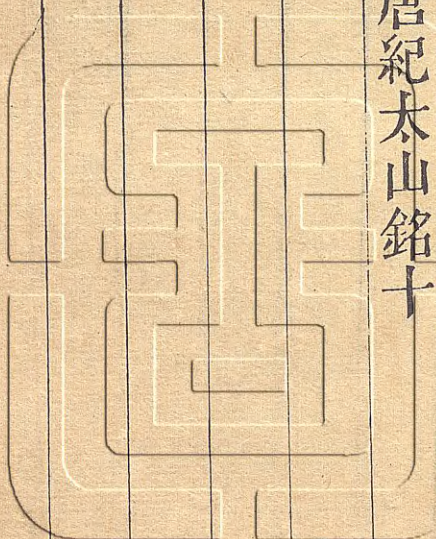 唐紀太山銘十